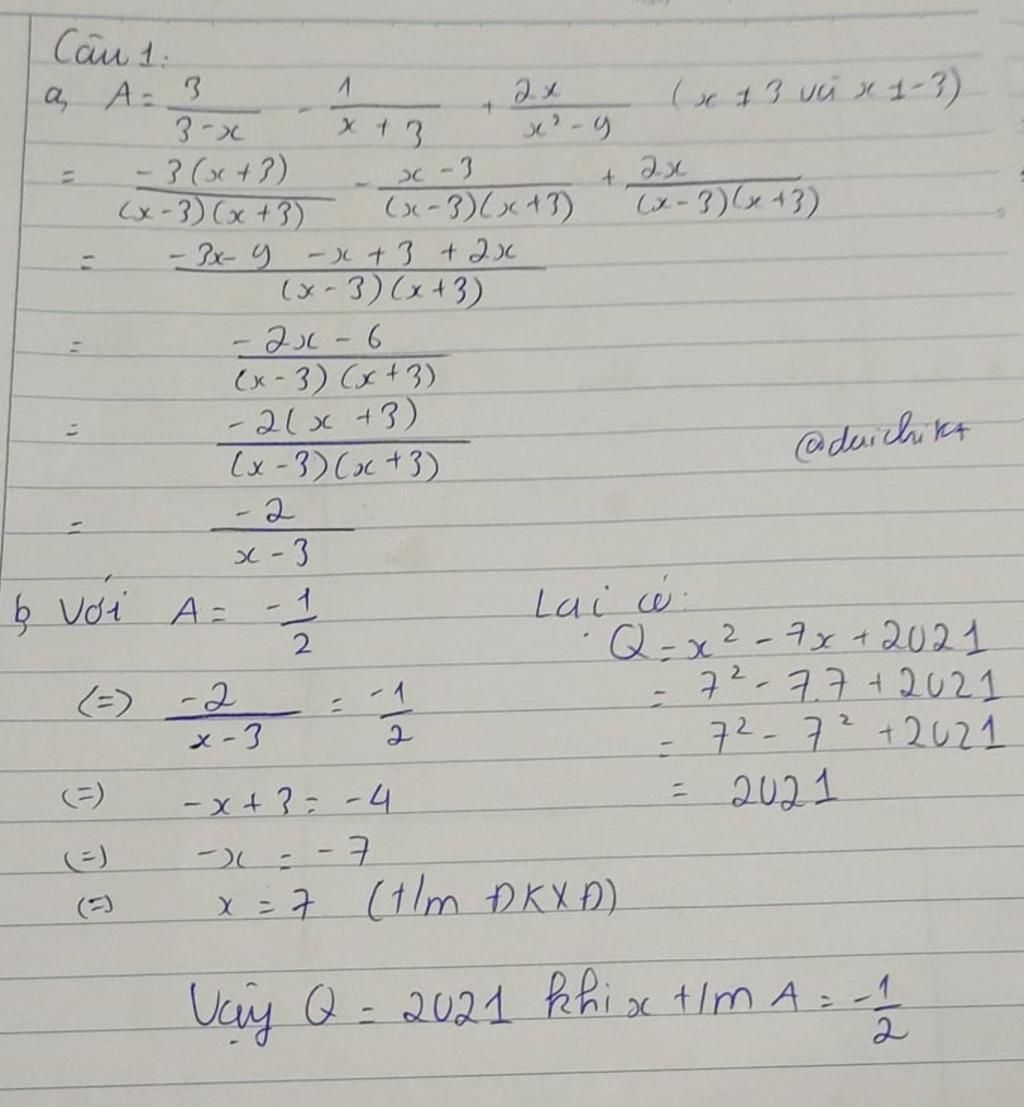 Câu 1:
a, A = 3/(3-x) - 1/(x+3) + 2x/(x²-9) (x ≠ 3 và x ≠ -3)
= -3(x+3)/((x-3)(x+3)) - (x-3)/((x-3)(x+3)) + 2x/((x-3)(x+3))
= (-3x-9 -x+3+2x)/((x-3)(x+3))
= (-2x-6)/((x-3)(x+3))
= -2(x+3)/((x-3)(x+3))
@daichikt
= -2/(x-3)
b, Với A = -1/2
(=) -2/(x-3) = -1/2
(=) -x+3 = -4
(=) -x = -7
(=) x = 7 (t/m ĐKXĐ)
Lại có:
Q = x² - 7x + 2021
= 7² - 7.7 + 2021
= 7² - 7² + 2021
= 2021
Vậy Q = 2021 khi x t/m A = -1/2